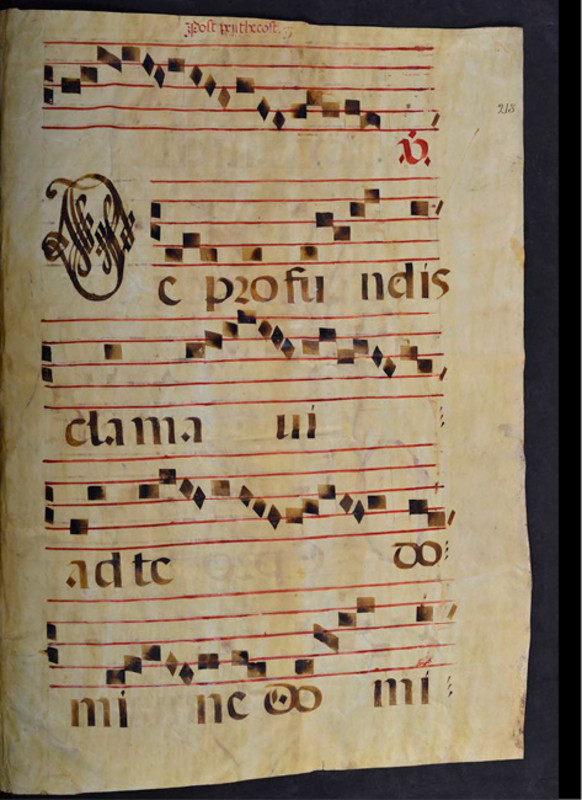 Post penthecost.
218
V.
De profu ndis
clama ui
ad te do
mi ne do mi